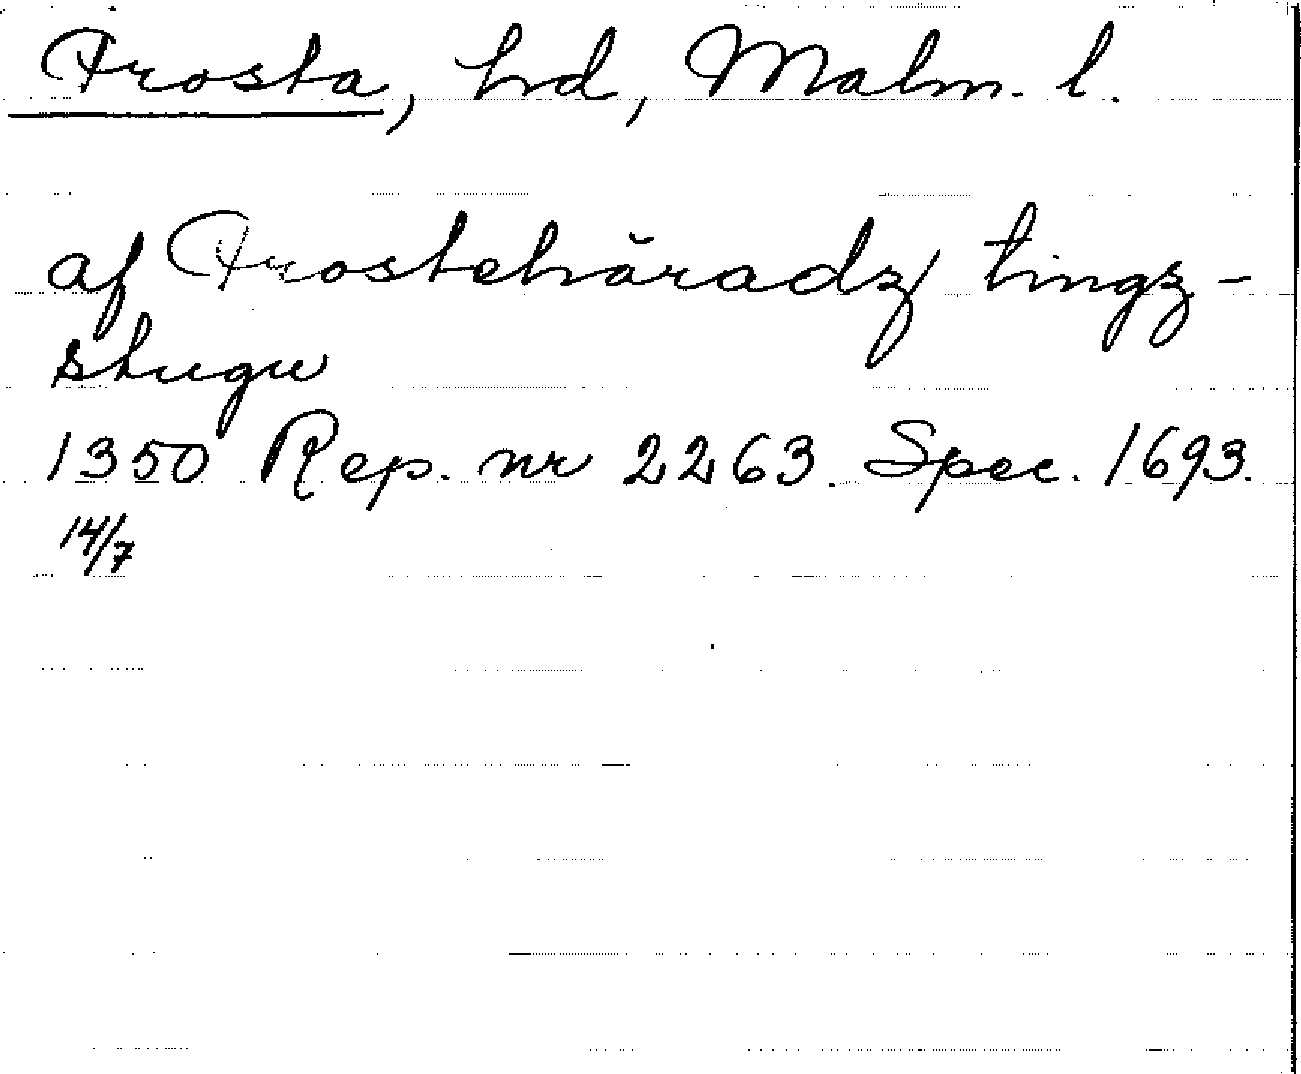 Frosta, hd, Malm. l.
af Frostehäradz tingz-
stugu
1350 Rep. nr 2263. Spec. 1693.
14/7